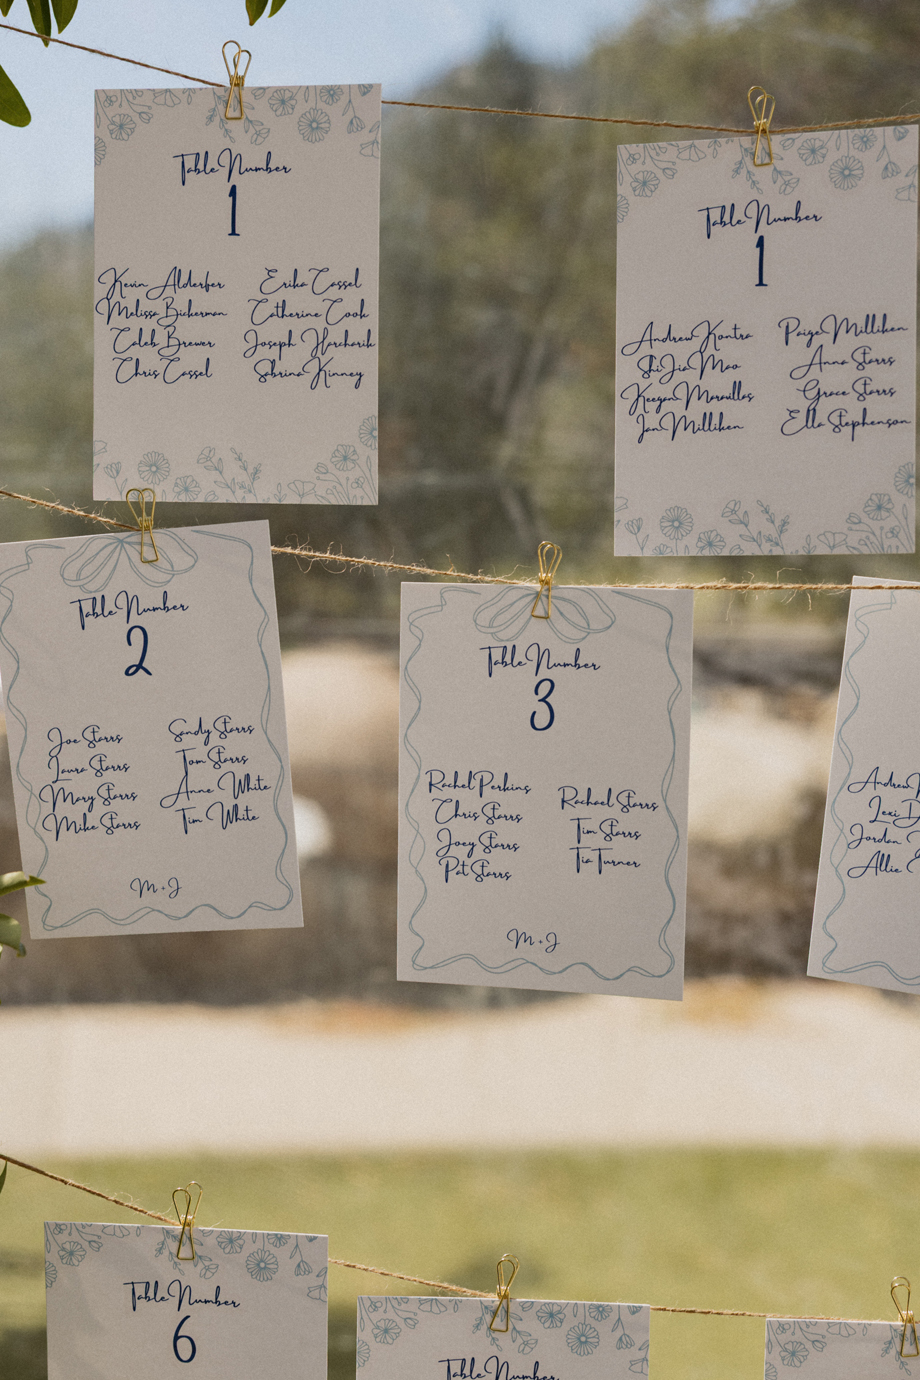 Table Number
1
Kevin Alderfer
Melissa Bickerman
Caleb Brewer
Chris Cassel
Erika Cassel
Catherine Cook
Joseph Harcharik
Sabrina Kinney
Table Number
1
Andrew Kontra
ShiJia Mao
Keegan Maravillas
Jan Milliken
Paige Milliken
Anna Starrs
Grace Starrs
Ella Stephenson
Table Number
2
Joe Starrs
Laura Starrs
Mary Starrs
Mike Starrs
Sandy Starrs
Tom Starrs
Anne White
Tim White
M+J
Table Number
3
Rachel Perkins
Chris Starrs
Joey Starrs
Pat Starrs
Rachael Starrs
Tim Starrs
Tia Turner
M+J
Andrew
Lexi
Jordan
Allie
Table Number
6
Table Number